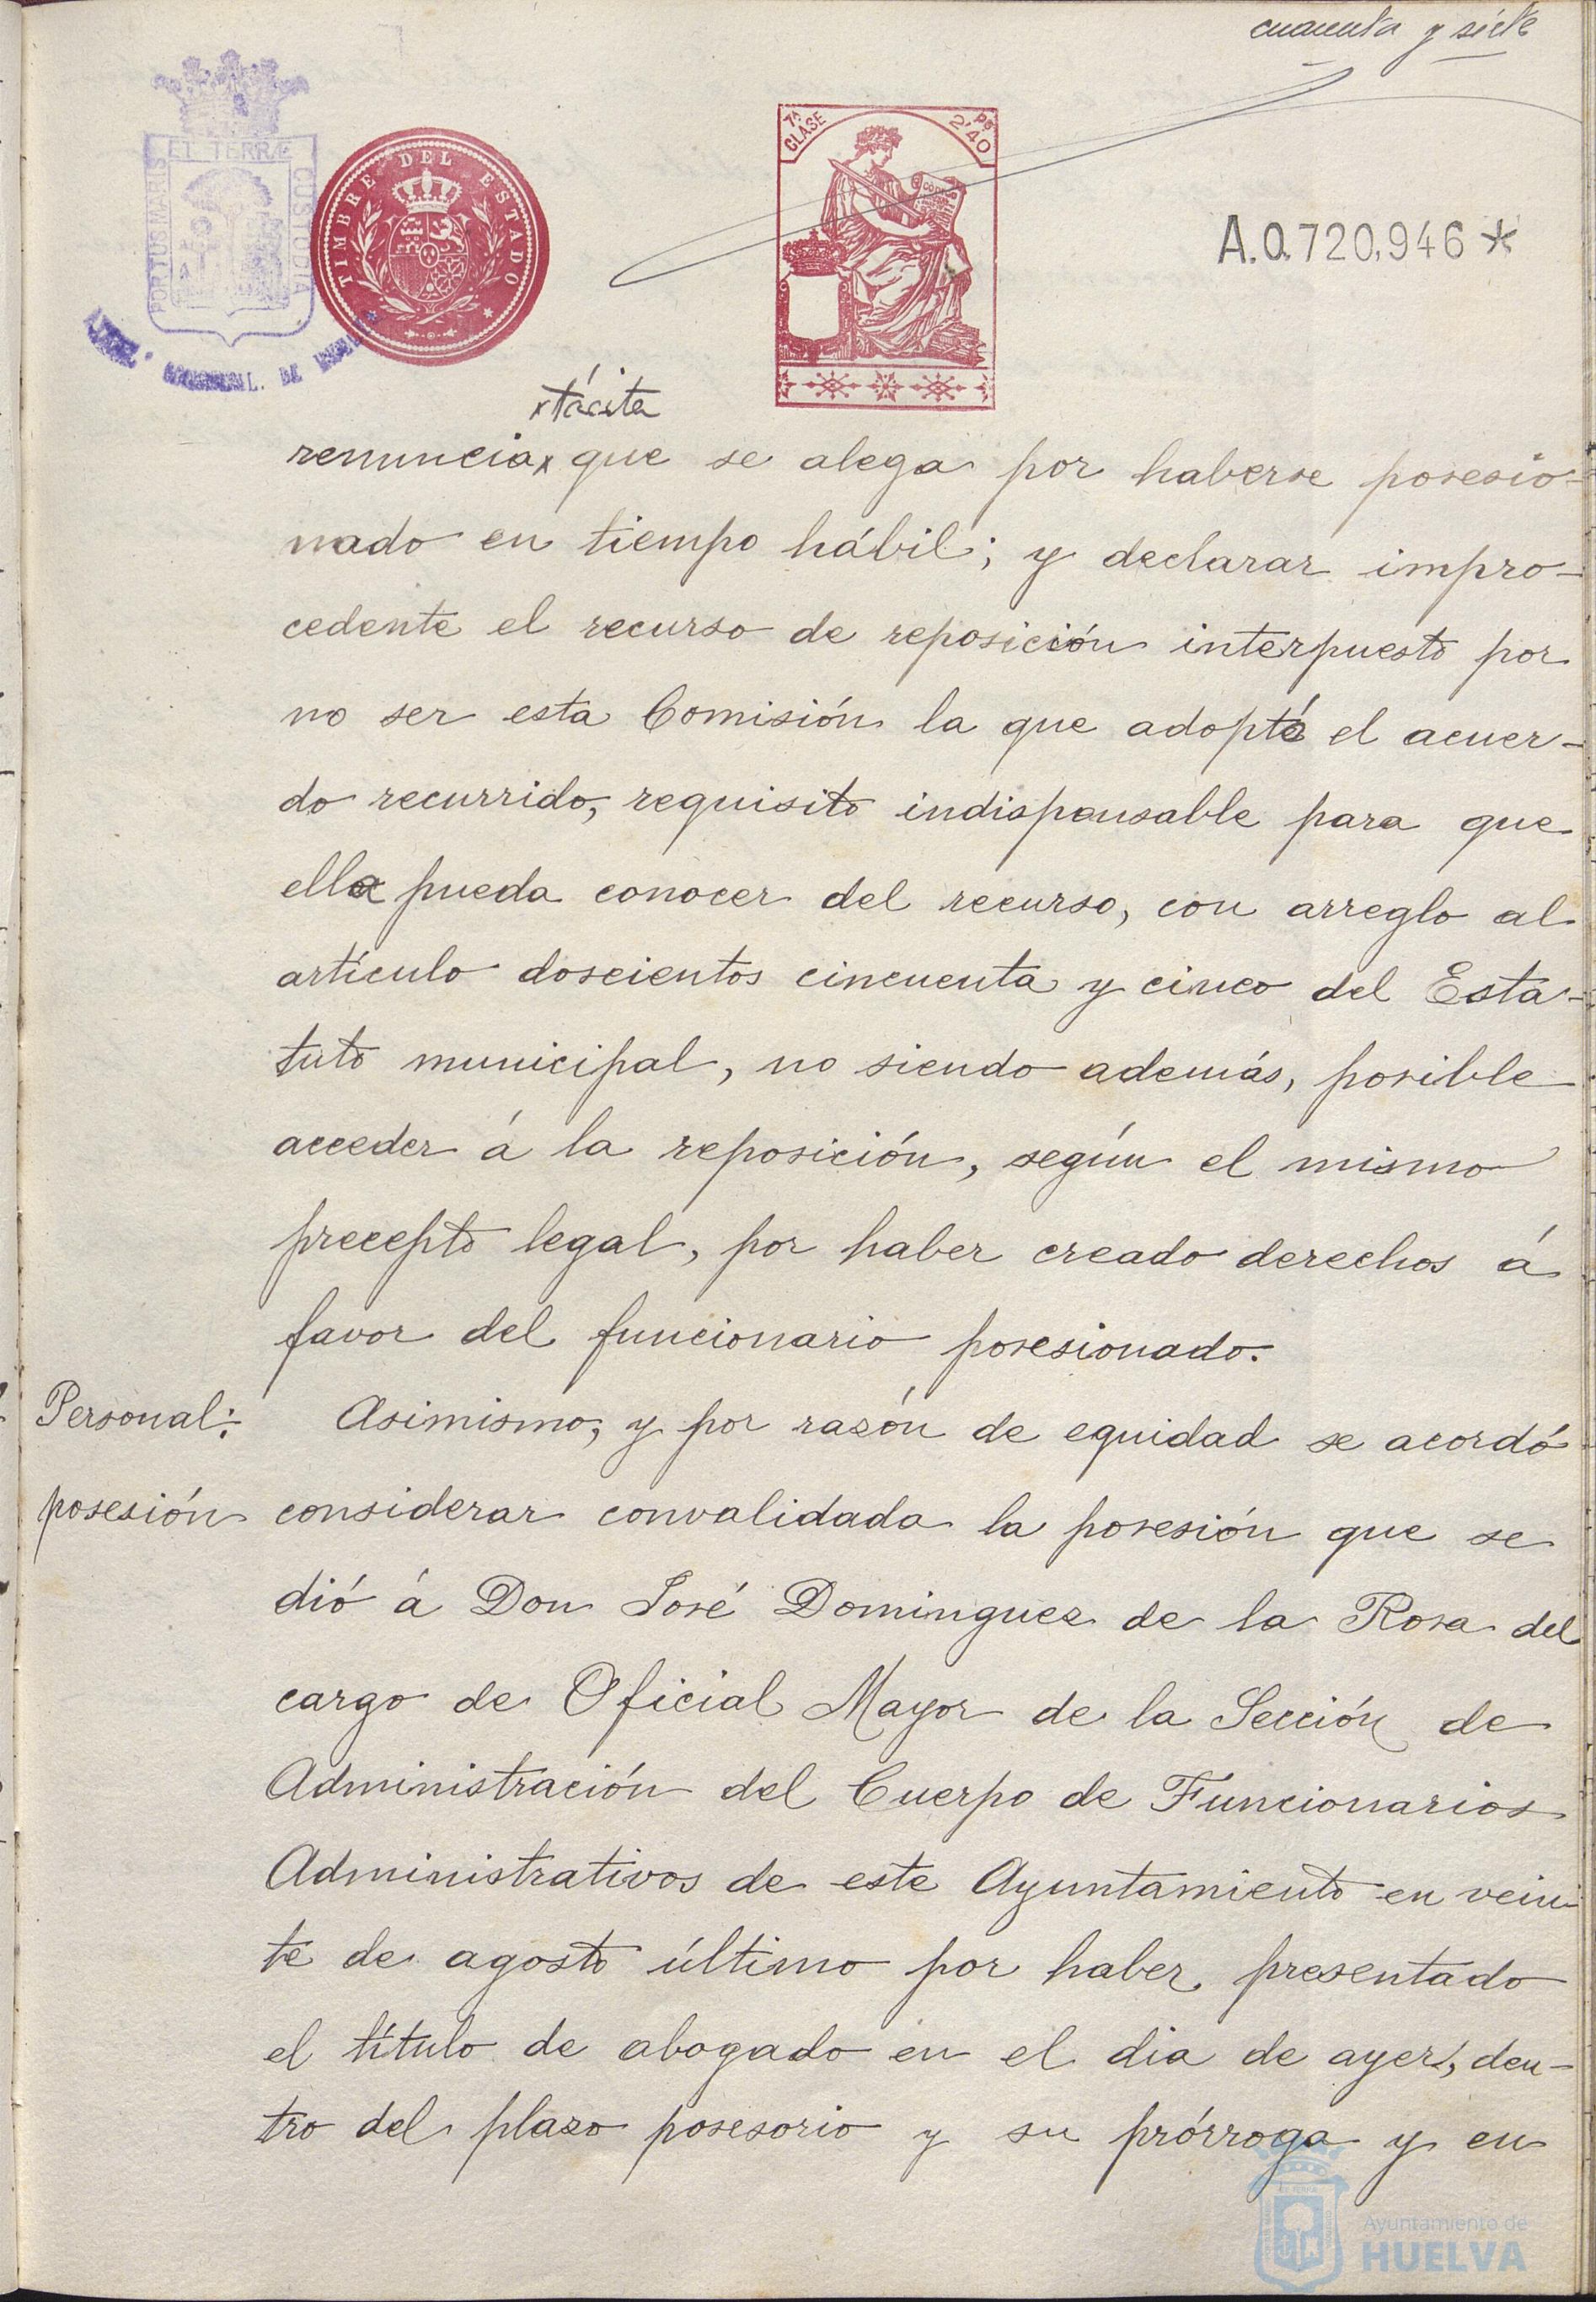 cuarenta y siete
PORTUS MARIS
ET TERRÆ
CUSTODIA
DE
TIMBRE DEL ESTADO
7ª CLASE
Ps 2'40
A.0.720,946*
×tácita
renuncia× que se alega por haberse posesio-
nado en tiempo hábil; y declarar impro-
cedente el recurso de reposición interpuesto por
no ser esta Comisión la que adoptó el acuer-
do recurrido, requisito indispensable para que
ella pueda conocer del recurso, con arreglo al
artículo doscientos cincuenta y cinco del Esta-
tuto municipal, no siendo además, posible
acceder á la reposición, según el mismo
precepto legal, por haber creado derechos á
favor del funcionario posesionado.
Personal:
posesión
Asimismo, y por razón de equidad se acordó
considerar convalidada la posesión que se
dió á Don José Dominguez de la Rosa del
cargo de Oficial Mayor de la Sección de
Administración del Cuerpo de Funcionarios
Administrativos de este Ayuntamiento en vein-
te de agosto último por haber presentado
el título de abogado en el dia de ayer, den-
tro del plazo posesorio y su prórroga y en
Ayuntamiento de
HUELVA